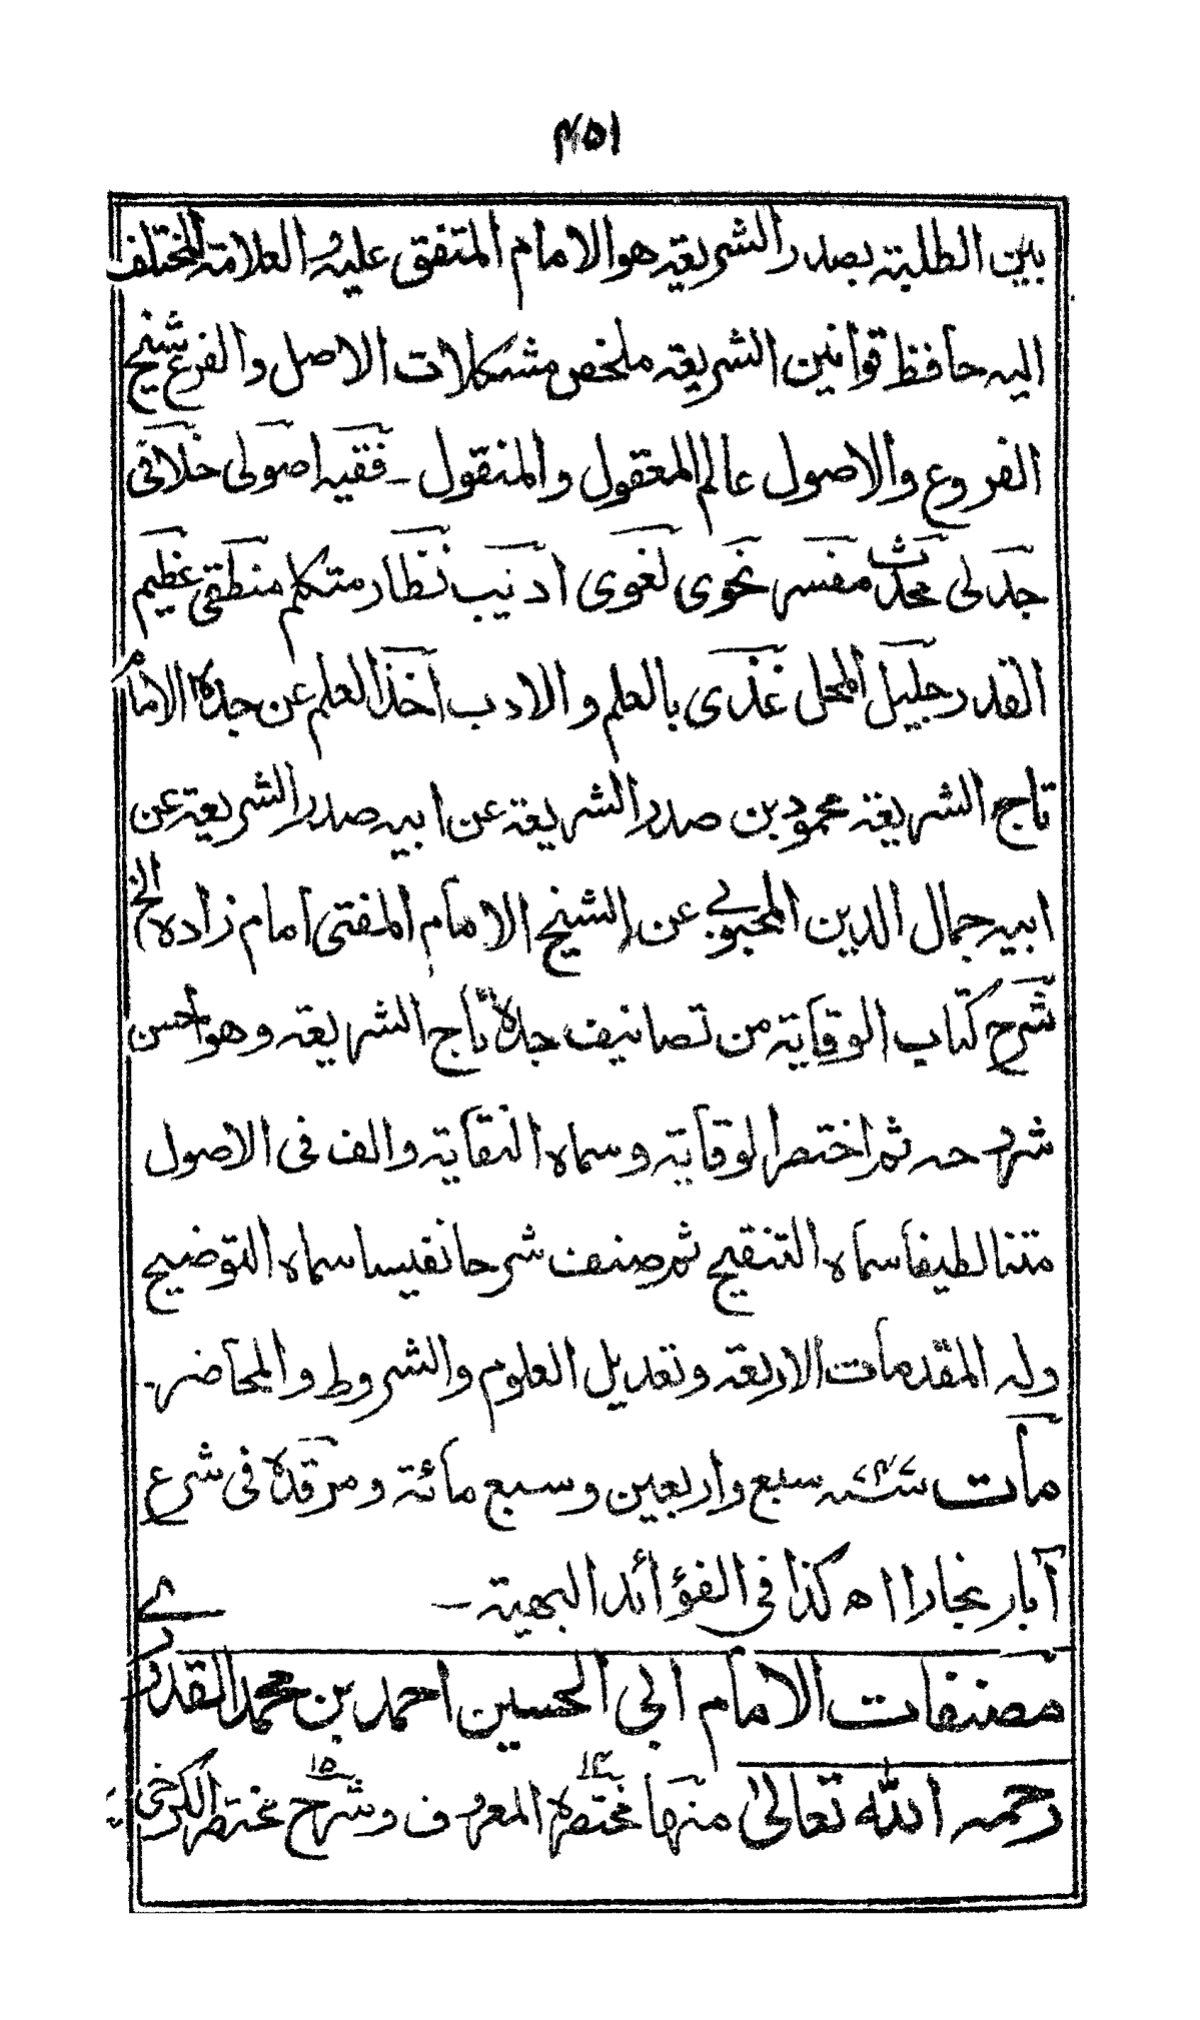 ۴۵۱
بين الطلبة بصدر الشريعة هو الامام المتفق عليه والعلامة المختلف
اليه حافظ قوانين الشريعة ملخص مشكلات الاصل والفرع شيخ
الفروع والاصول عالم المعقول والمنقول ـ فقيه اصولى خلافى
جدلى محدث مفسر نحوى لغوى اديب نظار متكلم منطقى عظيم
القدر جليل المحل غذى بالعلم والادب اخذ العلم عن جده الامام
تاج الشريعة محمود بن صدر الشريعة عن ابيه صدر الشريعة عن
ابيه جمال الدين المحبوبى عن الشيخ الامام المفتى امام زاده الخ
شرح كتاب الوقاية من تصانيف جده تاج الشريعة وهو احسن
شروحه ثم اختصر الوقاية وسماه النقاية والف فى الاصول
متنا لطيفا سماه التنقيح ثم صنف شرحا نفيسا سماه التوضيح
وله المقدمات الاربعة وتعديل العلوم والشروط والمحاضر ـ
مات سنه ۷۴۷ سبع واربعين وسبع مائة ومرقده فى شرع
آبار بخارا اه كذا فى الفوائد البهية ـ
مصنفات الامام ابى الحسين احمد بن محمد القدورى
رحمه الله تعالى منها مختصره ۱۴ المعروف وشرح ۱۵ مختصر الكرخى